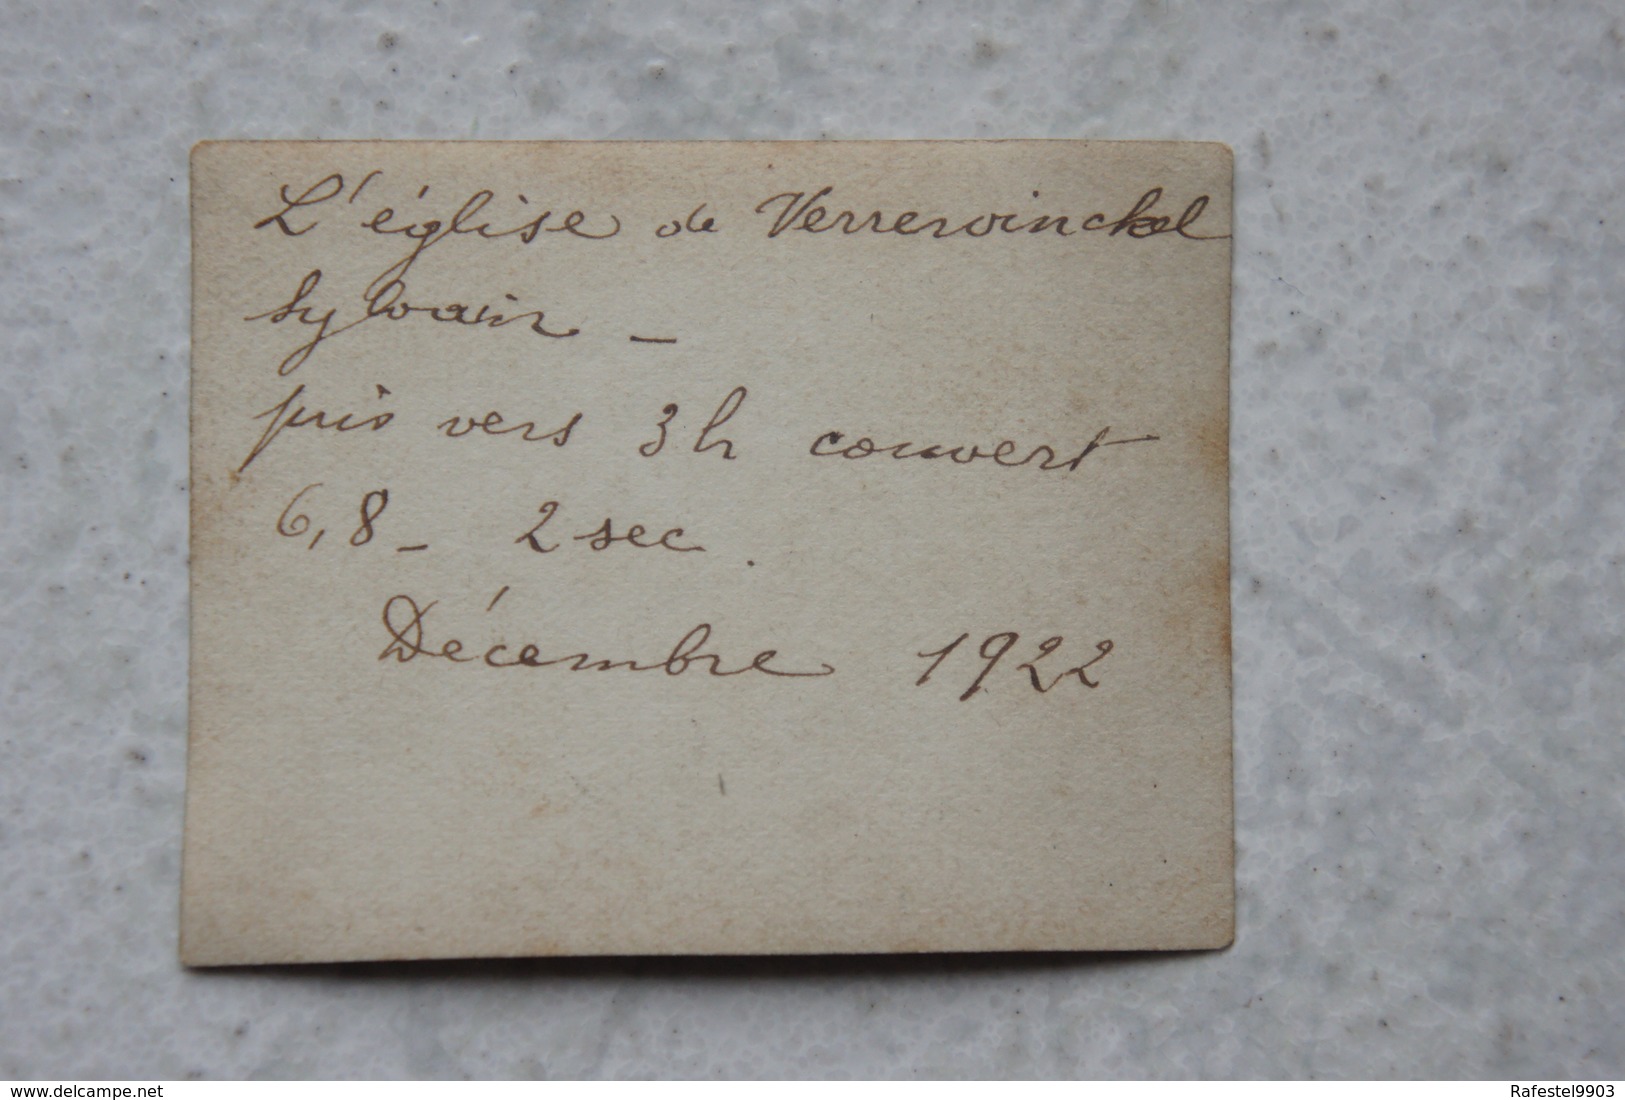 L'église de Verrewinckel
Sylvain -
pris vers 3h couvert
6,8 - 2 sec.
Décembre 1922
www.delcampe.net
Rafestel9903